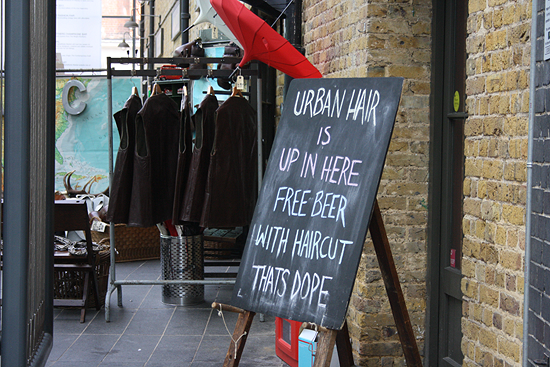 C
URBAN HAIR
IS
UP IN HERE
FREE BEER
WITH HAIRCUT
THATS DOPE